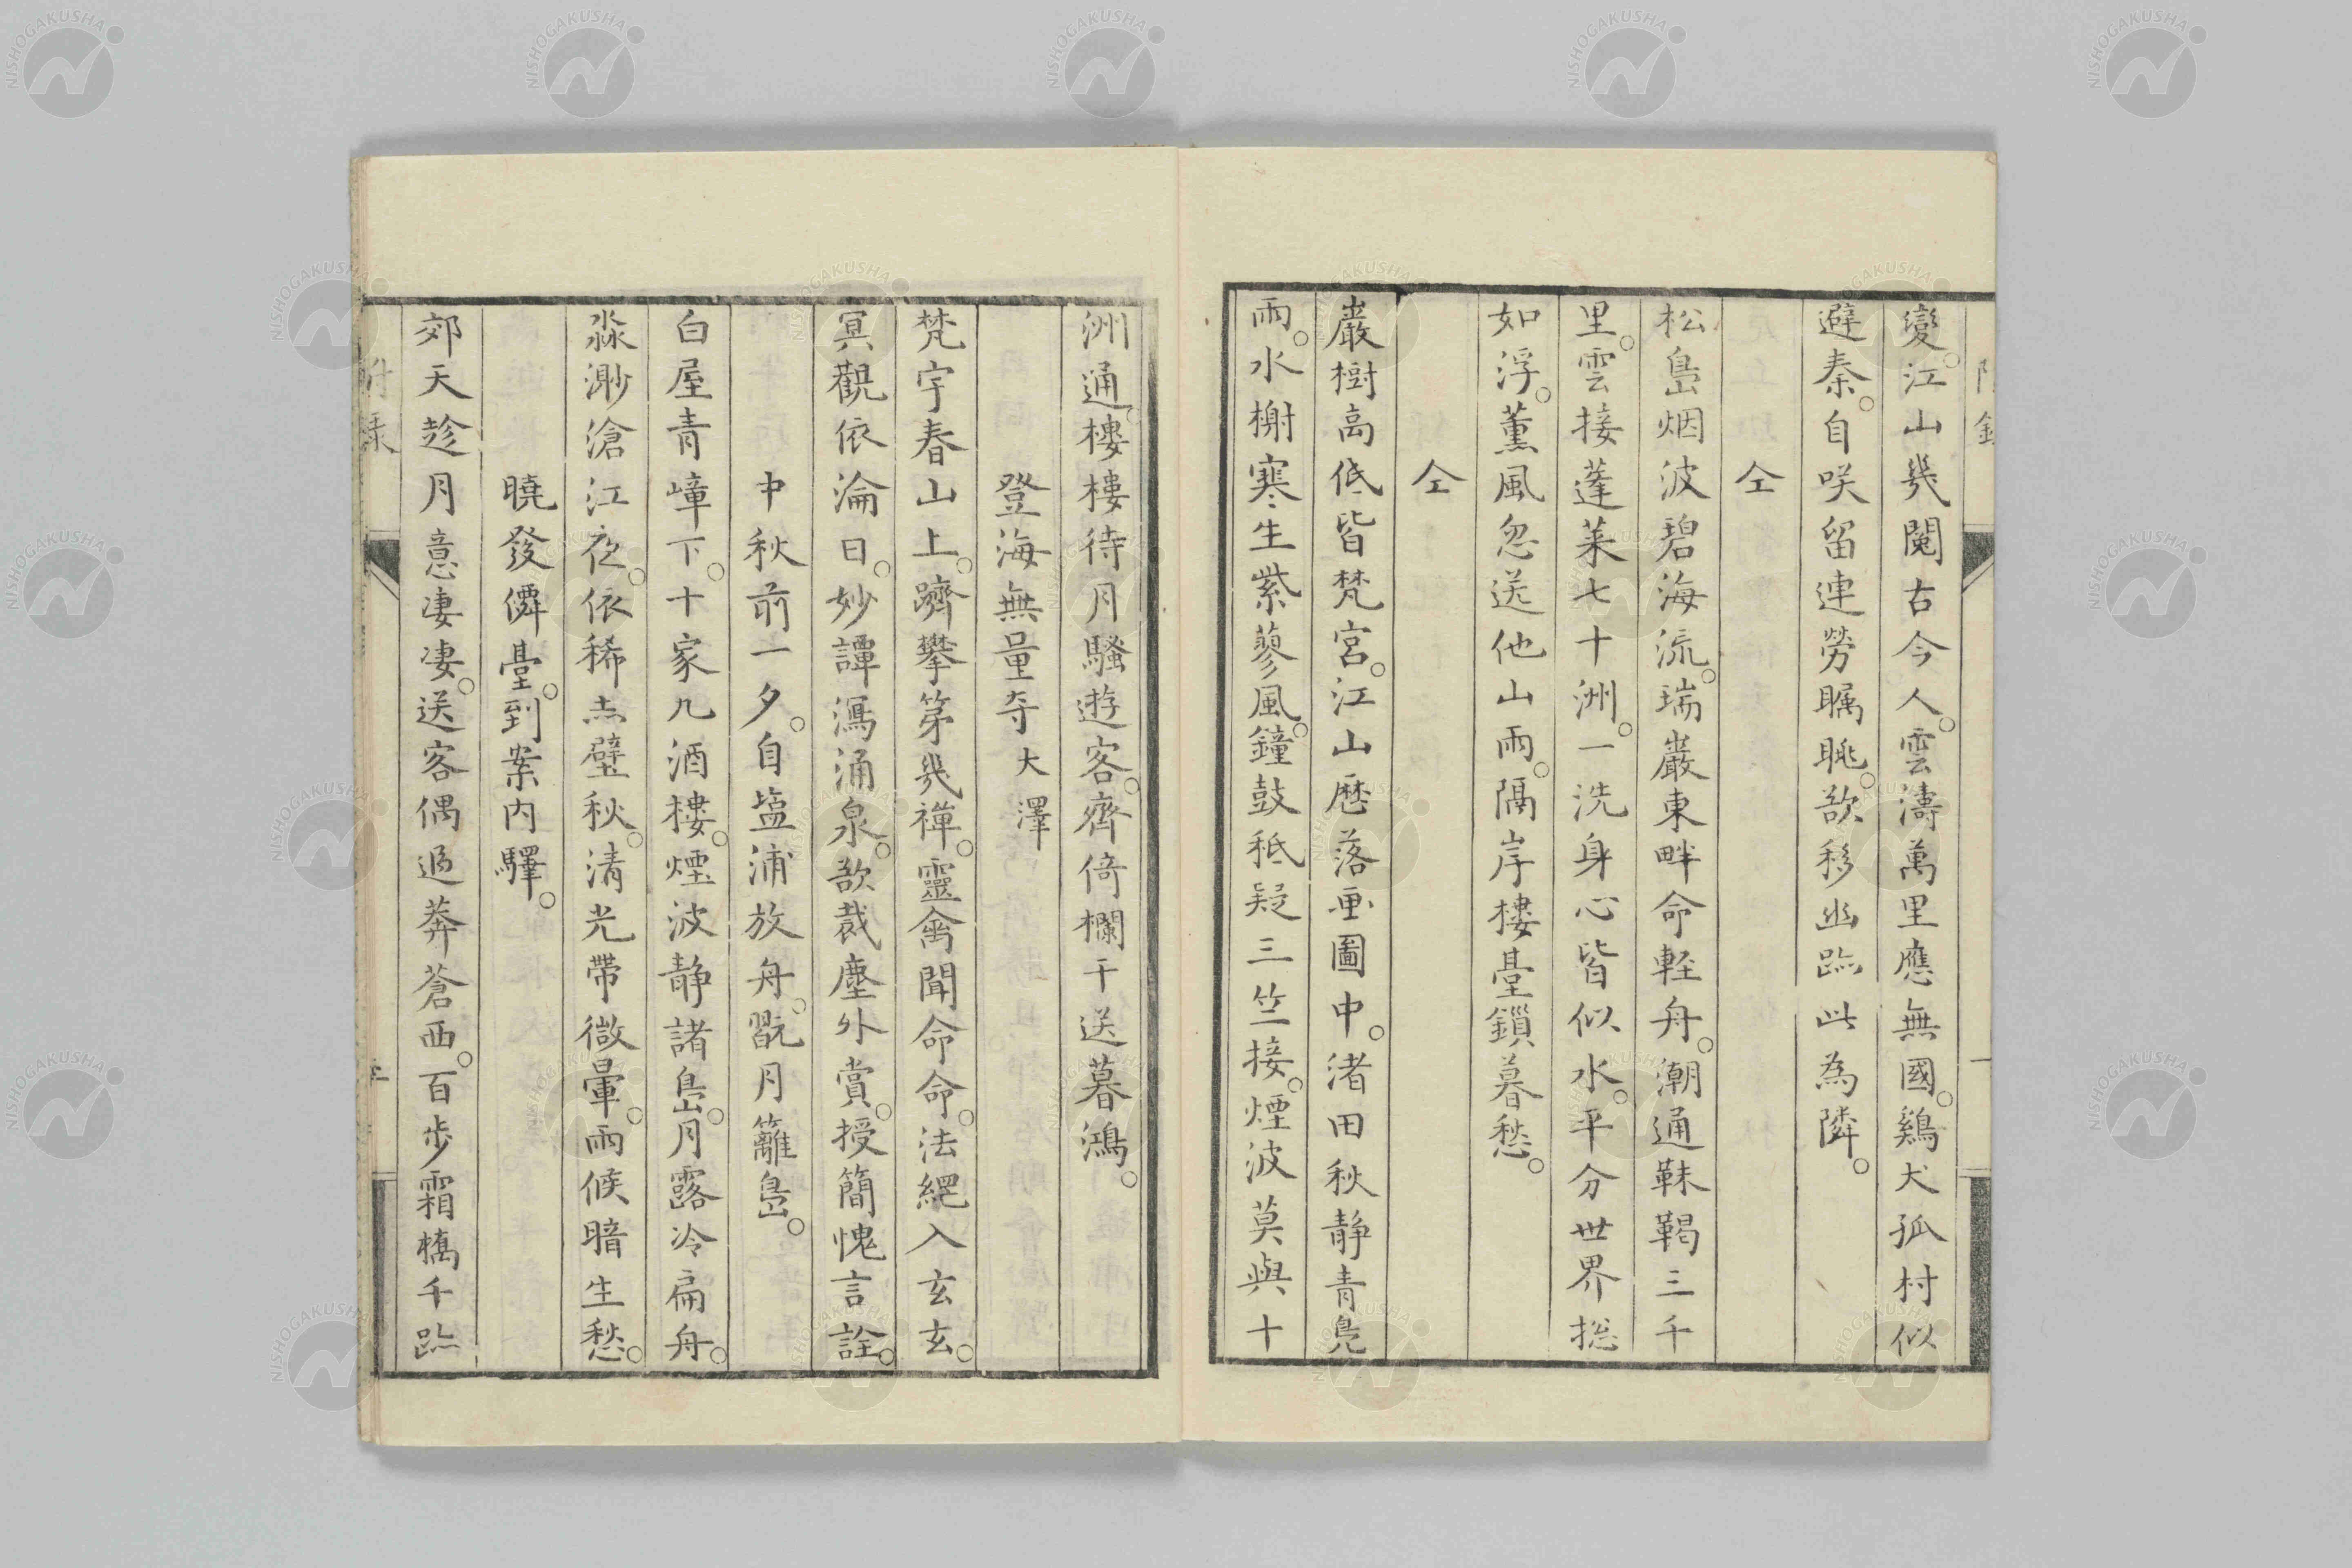 變。江山幾閱古今人。雲濤萬里應無國。鷄犬孤村似
避秦。自咲留連勞矚眺。欲移幽跡此為隣。
仝
松島烟波碧海流。瑞巖東畔命輕舟。潮通靺鞨三千
里。雲接蓬萊七十洲。一洗身心皆似水。平分世界揔
如浮。薫風忽送他山雨。隔岸樓臺鎖暮愁。
仝
巖樹高低皆梵宮。江山歷落画圖中。渚田秋静青鳧
雨。水榭寒生紫蓼風。鐘鼓秪疑三竺接。煙波莫與十
洲通。樓樓待月騷遊客。齊倚欄干送暮鴻。
登海無量寺 大澤
梵宇春山上。躋攀第幾禪。靈禽聞命命。法綱入玄玄。
冥觀依淪日。妙譚瀉涌泉。欲裁塵外賞。授簡愧言詮。
中秋前一夕。自塩浦放舟。翫月籬島。
白屋青嶂下。十家九酒樓。煙波静諸島。月露冷扁舟。
淼渺滄江夜。依稀赤壁秋。清光帶微暈。雨候暗生愁。
曉發僊臺。到案内驛。
郊天趁月意凄凄。送客偶過莽蒼西。百步霜橋千跡
附錄
NISHOGAKUSHA